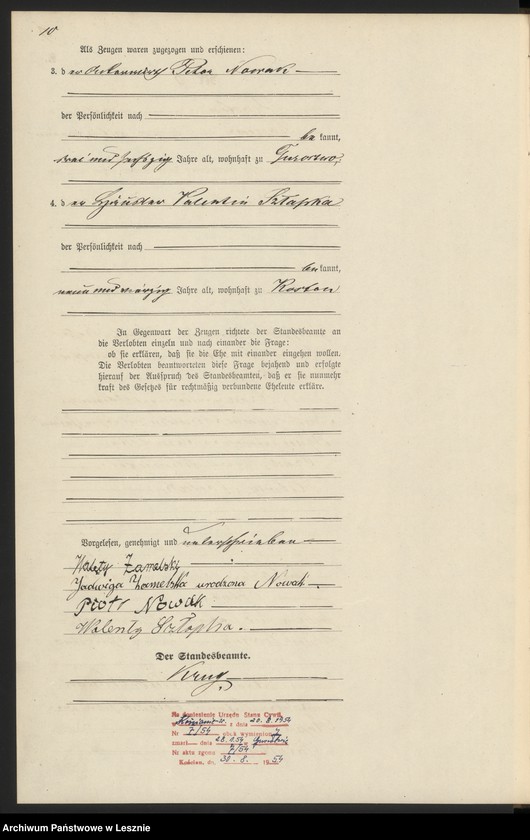 10
Als Zeugen waren zugezogen und erschienen:
3. der Ackerwirth Peter Nowak
der Persönlichkeit nach
bekannt,
drei und sechszig Jahre alt, wohnhaft zu Gurostwo,
4. der Häusler Valentin Szłapka
der Persönlichkeit nach
bekannt,
neun und vierzig Jahre alt, wohnhaft zu Kosten
In Gegenwart der Zeugen richtete der Standesbeamte an
die Verlobten einzeln und nach einander die Frage:
ob sie erklären, daß sie die Ehe mit einander eingehen wollen.
Die Verlobten beantworteten diese Frage bejahend und erfolgte
hierauf der Ausspruch des Standesbeamten, daß er sie nunmehr
kraft des Gesetzes für rechtmäßig verbundene Eheleute erkläre.
Vorgelesen, genehmigt und unterschrieben
Walęty Zamelski
Jadwiga Zamelska urodzona Nowak
Piotr Nowak
Walenty Szłapka.
Der Standesbeamte.
Krug
Na doniesienie Urzędu Stanu Cywil.
z dnia 28.8.1954
Nr 7/54 obok wymieniony
zmarł dnia
Nr aktu zgonu 7/54
Kościan, dn. 30.8. 1954
Archiwum Państwowe w Lesznie